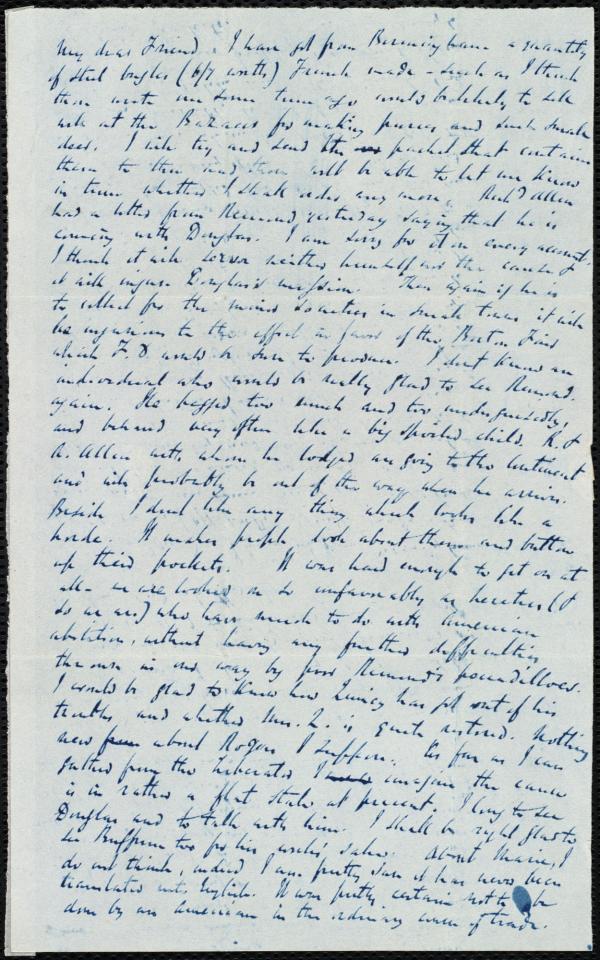 My dear Friend I have got from Birmingham a quantity
of steel bugles (6/7 worth) French made - such as I think
those wrote me some time ago would be likely to sell
well at the Bazaars for making purses and such small
deer. I will try and send the parcel that contains
them to thee and thou will be able to let me know
in turn whether I shall order any more. Richd Allen
had a letter from Remond yesterday saying that he is
coming with Douglas. I am sorry for it on every account.
I think it will serve neither himself nor the cause &
it will injure Douglas's mission. Then again if he is
to collect for the minor societies in small towns it will
be injurious to the effect in favor of the Boston Fair
which F. D. would be sure to produce. I don't know an
individual who would be really glad to see Remond
again. He begged too much and too undisguisedly,
and behaved very often like a big spoiled child. R. &
A. Allen with whom he lodged are going to the Continent
and will probably be out of the way when he arrives.
Beside I don't like any thing which looks like a
horde. It makes people look about them and button
up their pockets. It was hard enough to get on at
all - we are looked on so unfavorably as heretics (&
so we are) who have much to do with American
abolition, without having any further difficulties
thrown in our way by poor Remond's peccadilloes.
I would be glad to know how Quincy has got out of his
troubles and whether Mrs. Q. is quite restored. Nothing
new from about Rogers I suppose. As far as I can
gather from the Liberator I imagine the cause
is in rather a flat state at present. I long to see
Douglas and to talk with him. I shall be right glad to
see Buffum too for his works' sake. About Marie, I
do not think, indeed I am pretty sure it has never been
translated into English. It was pretty certain not to be
done by an American in the ordinary course of trade.